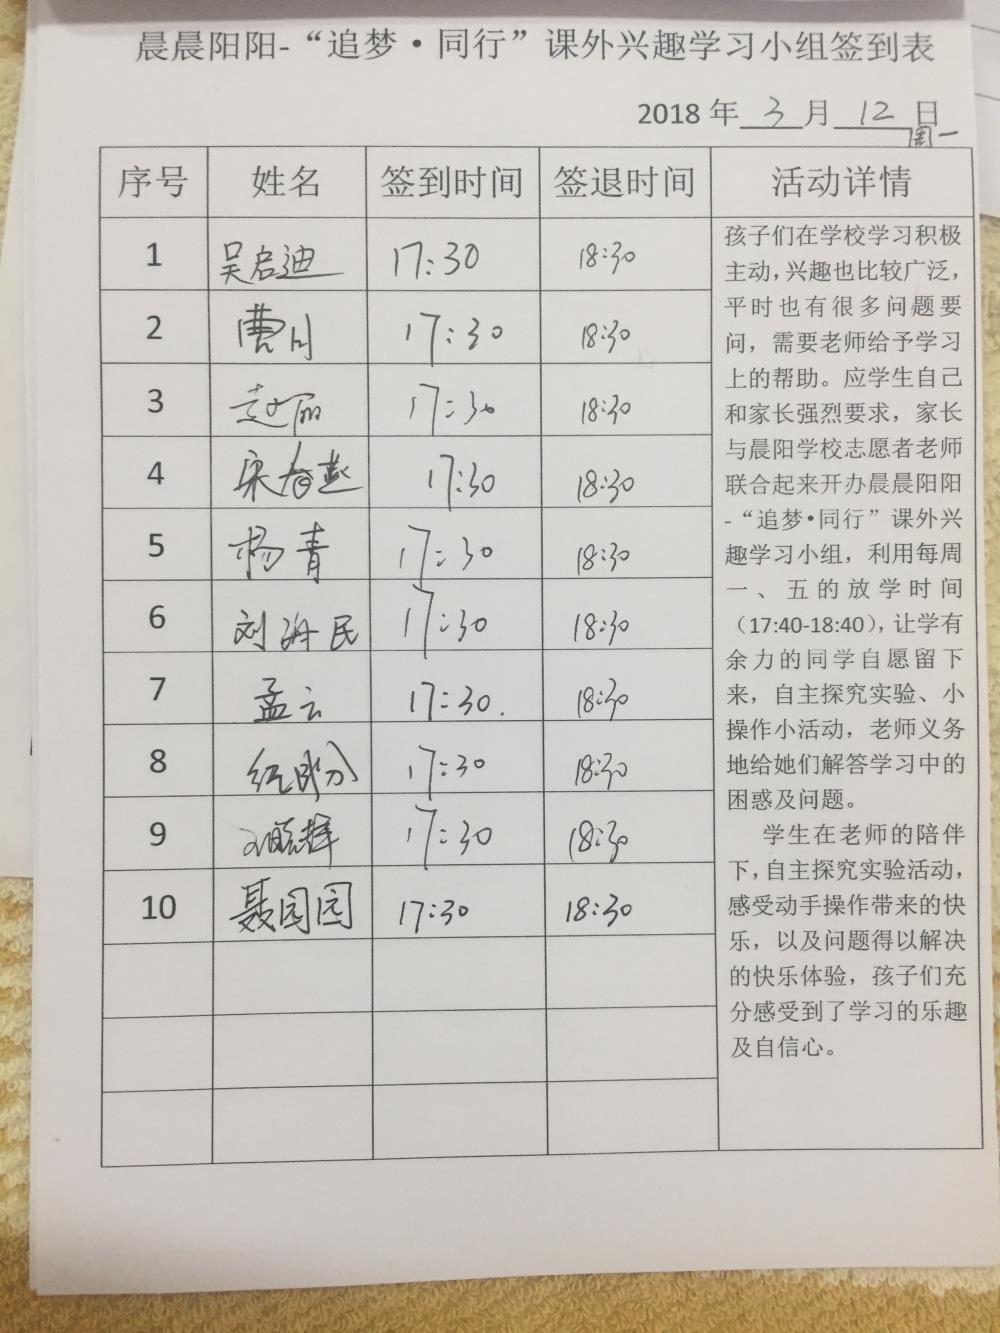 晨晨阳阳-“追梦·同行”课外兴趣学习小组签到表
2018年 3 月 12 日
周一
序号 姓名 签到时间 签退时间 活动详情
1 吴启迪 17:30 18:30
2 曹月 17:30 18:30
3 赵丽 17:30 18:30
4 宋春燕 17:30 18:30
5 杨青 17:30 18:30
6 刘海民 17:30 18:30
7 孟云 17:30. 18:30
8 17:30 18:30
9 17:30 18:30
10 聂园园 17:30 18:30
孩子们在学校学习积极
主动，兴趣也比较广泛，
平时也有很多问题要
问，需要老师给予学习
上的帮助。应学生自己
和家长强烈要求，家长
与晨阳学校志愿者老师
联合起来开办晨晨阳阳
-“追梦·同行”课外兴
趣学习小组，利用每周
一、五的放学时间
（17:40-18:40），让学有
余力的同学自愿留下
来，自主探究实验、小
操作小活动，老师义务
地给她们解答学习中的
困惑及问题。
学生在老师的陪伴
下，自主探究实验活动，
感受动手操作带来的快
乐，以及问题得以解决
的快乐体验，孩子们充
分感受到了学习的乐趣
及自信心。